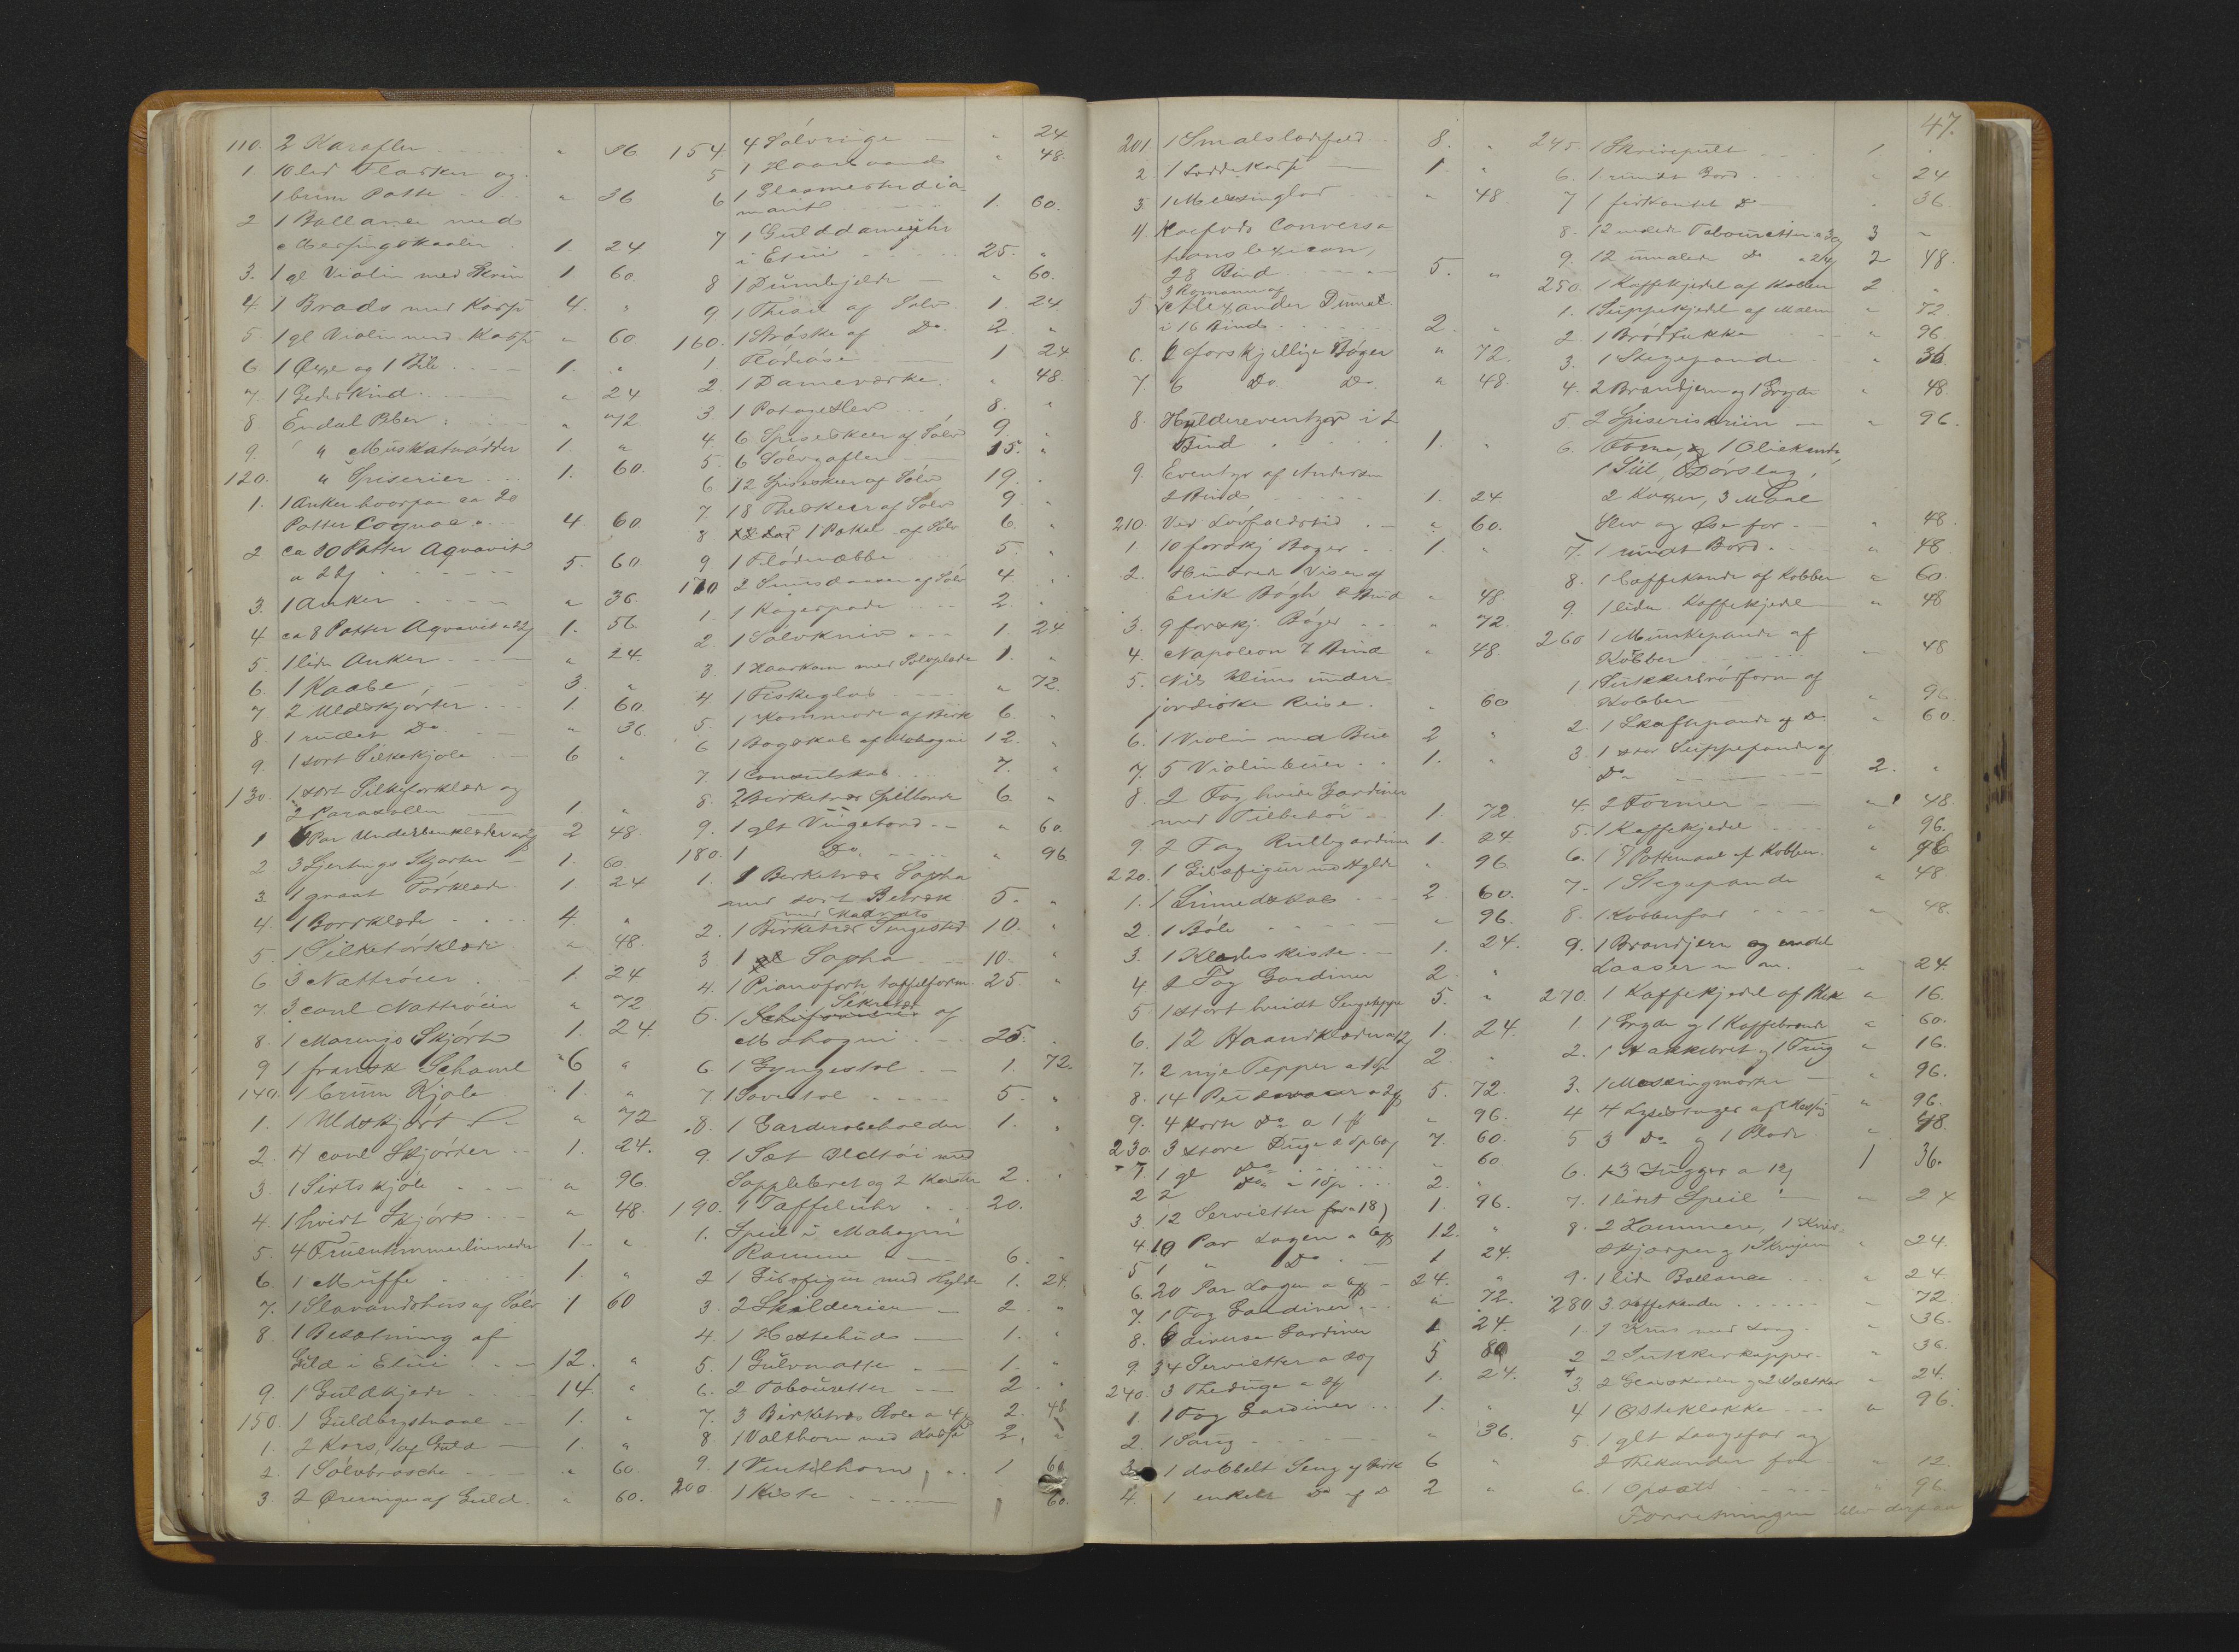 110. 2 Karafler " 86
1. 10 led Flasker og
1 brun Potte " 36
2 1 Ballance med
Messingskaaler 1. 24
3. 1 gl Violin med Skrin 1. 60.
4. 1 Brads med Kasse 4. "
5 1 gl Violin med Kasse " 60
6 1 Øxe og 1 Bile 1. "
7. 1 Gedeskind " 24
8 Endel Peber " 72
9. " Muskatnødder 1. "
120. " Spiserier 1. 60.
1. 1 Anker hvorpaa ca 20
Potter Cognac 4. 60.
2 ca 30 Potter Aqvavit
a 22 5. 60.
3. 1 Anker " 36.
4. ca 8 Potter Aqvavit a 22 1. 56
5. 1 liden Anker " 24.
6. 1 Kaabe 3. "
7 2 Uldskjorter 1. 60
8. 1 rudet Do " 36.
9. 1 sort Silkekjole 6 "
130. 1 sort Silkeforklæde og
2 Parasoller 1. "
1 Par Underbenklæder 2 48.
2 3 Sjertings Skjorter 1. 60.
3. 1 graat Tørklæde 1. 24
4. 1 Bordklæde 4. "
5. 1 Silketørklæde " 48.
6 3 Nattrøier 1. 24
7. 3 coul Nattrøier " 72
8. 1 Marengo Skjørt 1. 24.
9 1 fransk Schavel 6 "
140. 1 brun Kjole 1. "
1. 1 Uldskjørt " 72
2. 4 coul Skjørter 1. 24.
3. 1 Sirtskjole " 96.
4. 1 hvidt Skjørt " 48.
5. 4 Fruentimmerlinneder 1. "
6. 1 Muffe 1. "
7. 1 Slavandshus af Sølv 1 60
8. 1 Besætning af
Guld i Etui 12. "
9. 1 Guldkjede 14. "
150. 1 Guldbrystnaal 1. "
1. 2 Kors, 1 af Guld 1. "
2. 1 Sølvbrosche " 60
3. 2 Øreringe af Guld " 60.
154. 4 Sølvringe " 24
5 1 Haarbaand " 48.
6 1 Glasmesterdia
mant 1. 60.
7 1 Gulddameuhr
i Etui 25. "
8 1 Dunbjelde " 60.
9. 1 Thesi af Sølv 1. 24
160. 1 Strøske af Do. 2. "
1. Rodiøse 1 24
2. 1 Dameværke " 48.
3. 1 Potageslev 8. "
4. 6 Spiseskeer af Sølv 9. "
5. 6 Sølvgafler 15. "
6 12 Spiseskeer af Sølv 19. "
7. 18 Theskeer af Sølv 9. "
8 1 Pokal af Sølv 6. "
9 1 Flødenæbbe 5. "
170 2 Snusdaaser af Sølv 4. "
1. 1 Kagespade 2. "
2. 1 Sølvkniv 1. 24
3. 1 Haarkam med Sølvplade 1. "
4 1 Fiskeglas " 72.
5. 1 Kommode af Birk 6. "
6 1 Bogskab af Mahogni 12. "
7. 1 Consulskab 7. "
8. 2 Birketræs Spilleborde 6. "
9. 1 glt Vingebord " 60.
180. 1 Do. " 96
1. 1 Birketræs Sopha
med sort Betræk 5. "
med Madrats
2. 1 Birketræs Sengested 10. "
3 1 Sopha 10. "
4. 1 Pianoforte taffelform 25. "
Sekretær
5. 1 af
Mahogni 25. "
6. 1 Gyngestol 1. 72.
7. 1 Sovestol 5. "
8. 1 Garderobeholder 1. "
9. 1 Sæt Ildtøi med
Sopplebret og 2 Koster 2. "
190. 1 Taffeluhr 20.
1. Speil i Mahogni
Ramme 6. "
2 1 Gibsfigur med Hylde 1. 24.
3. 2 Skilderier 2. "
4. 1 Hestehud 1. "
5. 1 Gulvmatte 1. "
6. 2 Tabouretter 2 "
7. 3 Birketræs Stole a 2. 48
8. 1 Valthorn med Kasse 2. "
9. 1 Ventilhorn 1 60
200. 1 Kiste 60.
47.
201. 1 Smalslædefeld 8. "
2. 1 Loddekasse 1. "
3 1 Messinglod " 48
4. Kosfods Conversa
tionslexicon,
28 Bind 5. "
3 Romaner af
5 Alexander Dumas
i 16 Bind 2. "
6. 6 forskjellige Bøger " 72.
7. 6 Do Do. " 48.
8. Huldreeventyr i 2
Bind 1. "
9. Eventyr af Andersen
2 Bind 1. 24
210 Ved Løvfaldstid " 60.
1. 10 forskj Bøger 1. "
2. Hundrede Viser af
Erik Bøgh 2 Bind " 48.
3. 9 forskj. Bøger " 72.
4. Napoleon 7 Bind " 48.
5. Nils Klims under
jordiske Reise " 60
6. 1 Violin med Bue 2 "
7. 5 Violinbuer 1. "
8 2 Fag hvide Gardiner
med Tilbehør 1. 72.
9. 2 Fag Rullegardiner 1. 24.
220. 1 Gibsfigur med Hylde " 96
1. 1 Linnedskab 2 60.
2. 1 Bøle " 96.
3. 1 Klædeskiste 1. 24.
4 2 Fag Gardiner 2. "
5 1 stort hvidt Sengeteppe 5. "
6. 12 Haandklæder a 12 1. 24.
7. 2 nye Tepper 2. "
8. 14 Pudevaar 5. 72.
9. 4 korte Do a 1 " 96.
230. 3 store Duge 7. 60.
1. 1 gl Do " 60
2 2 Do 2. "
3. 12 Servietter 18 1. 96.
4. 10 Par Lagen a 12. "
5 1 " Do 1 24.
6. 20 Par Lagen a 24. "
7. 1 Fag Gardiner " 72.
8. 6 diverse Gardiner 1 24.
9. 34 Servietter a 5
240. 3 Theduge a 1. 24.
1. 1 Fag Gardiner 1. "
2. 1 Saug " 36.
3. 1 dobbelt Seng af Birk 6 "
4. 1 enkelt Do af Do 2 "
245. 1 Skrivepult 1 "
6. 1 rundt Bord " 24
7 1 firkantet Do " 36.
8. 12 malede Tabouretter 3 "
9. 12 umalede Do a 24 2 48.
250. 1 Kaffekjedel af Kobber 2 "
1. 1 Suppekjedel af Malm " 72.
2. 1 Brødbakke " 96.
3. 1 Stegepande " 36
4. 2 Brandjern og 1 Gryde " 48
5. 2 Spiseriskriin " 96.
6. Forme, og 1 Oliekande
1 Sil, Dørslag,
2 Kopper, 3 Maal
Slev og Øse for " 48.
7. 1 rundt Bord " 48
8. 1 Caffekande af Kobber " 60.
9. 1 liden Kaffekjedel " 48
260 1 Munkepande af
Kobber " 48
1. 1 Sukkerbrødform af
Kobber " 96
2. 1 Skaftepande af Do " 60
3. 1 stor Suppepande af
Do 2. "
4. 2 Former " 48.
5. 1 Kaffekjedel " 96.
6. 1 Pottemaal af Kobber
7. 1 Stegepande " 48
8. 1 Kobberfad " 48.
9. 1 Brandjern og endel
Laaser m m. " 24.
270. 1 Kaffekjedel af Blik " 16.
1 1 Gryde og 1 Kaffebrænder " 60.
2. 1 Hakkebret og 1 Trug " 16.
3. 1 Messingmorter " 96.
4 4 Lysestager af Messing " 96.
5 3 Do og 1 Plade " 48.
6. 13 Jugger a 12 1 36.
7. 1 lidet Speil " 24
8. 2 Hammere, 1 Kniv
skjærper og 1 " 24.
9. 1 lide Ballance " 24
280 3 Kaffekander " 72
1. 1 Krus med Laag " 36.
2 2 Sukkerkopper " 36.
3. 2 Glasskaaler og 2 " 24.
4 1 Osteklokke " 96.
5. 1 glt Laagefad og
2 Thekander for " 12.
6. 1 Opsats " 96.
Forretningen blev derpaa